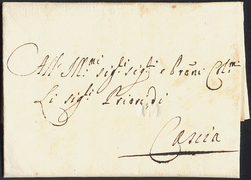 All' Ill:mi Sig:ri Sig:ri e Pròni Col:mi
Li Sig:ri Priori di
Cascia